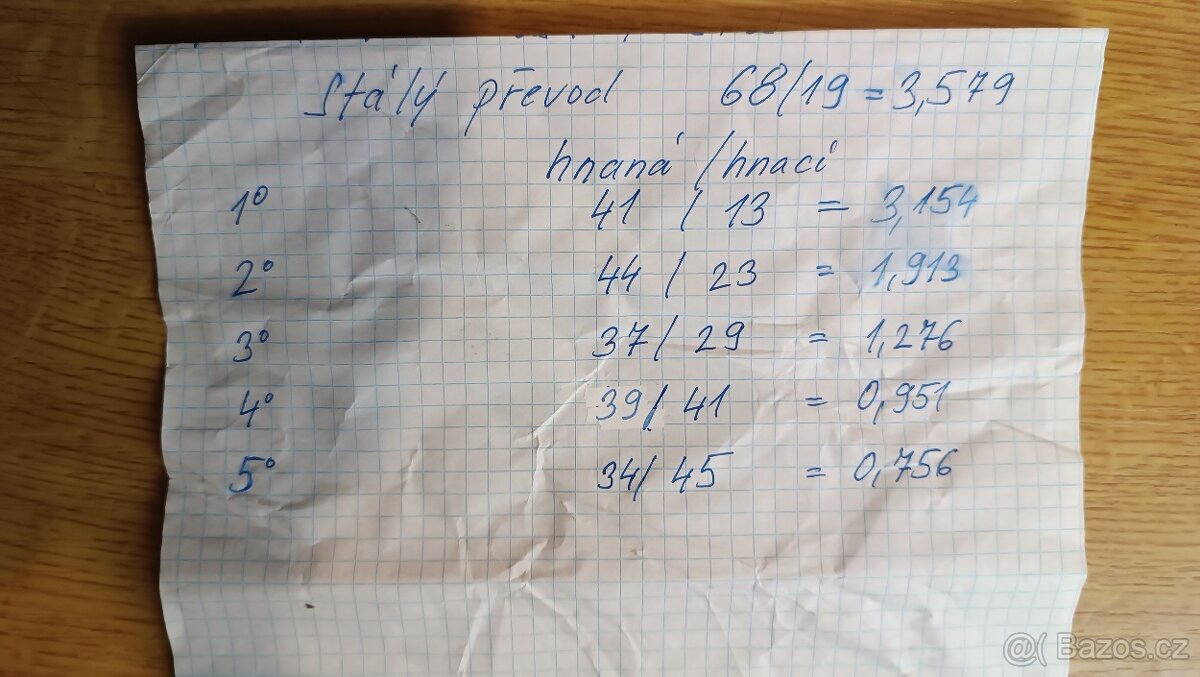 Stálý převod 68/19 = 3,579
hnaná / hnací
1° 41 / 13 = 3,154
2° 44 / 23 = 1,913
3° 37 / 29 = 1,276
4° 39 / 41 = 0,951
5° 34 / 45 = 0,756
@( Bazos.cz